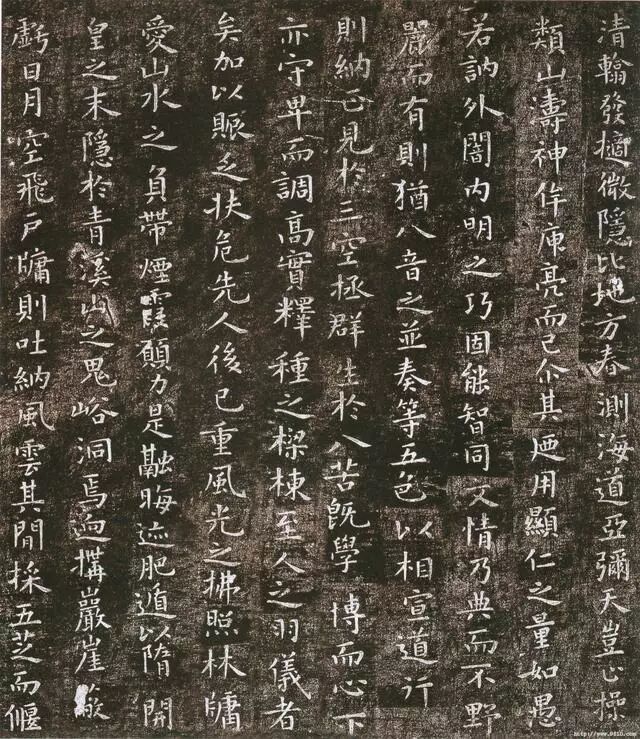 清翰發擿微隱比地方春測海道亞彌天豈止操
類山濤神侔庾亮而已尒其迺用顯仁之量如愚
若訥外闇内明之巧固能智同文情乃典而不野
麗而有則猶八音之並奏等五色以相宣道行
則納正見於三空拯群生於八苦既學博而心下
亦守卑而調高實釋種之樑棟至人之羽儀者
矣加以賑乏扶危先人後己重風光之拂照林牖
愛山水之負帶煙霞願力是融晦迹肥遁以隋開
皇之末隱於青溪山之鬼峪洞焉迺構巖崖蔽
虧日月空飛戶牖則吐納風雲其閒採五芝而偃
http://www.9610.com